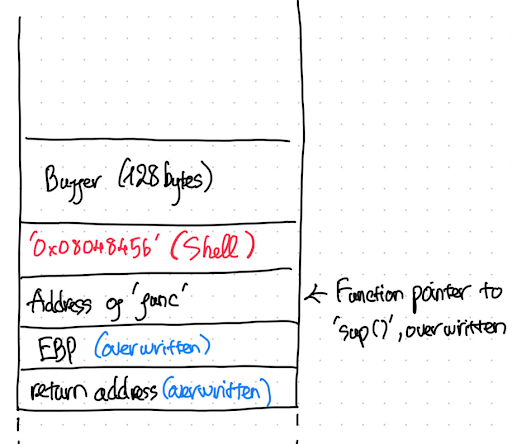 Buffer (128 bytes)
'0x0804845b' (Shell)
Address of 'func'
← Function pointer to
'sup()', overwritten
EBP (overwritten)
return address (overwritten)